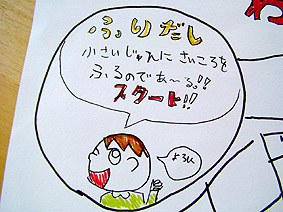 ふりだし
小さいじゅんに さいころを
ふるのであ〜る。!!
スタート!!